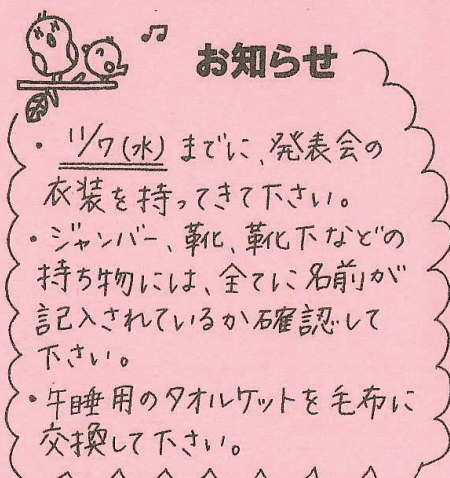 お知らせ
・11/7(水)までに、発表会の
衣装を持ってきて下さい。
・ジャンバー、靴、靴下などの
持ち物には、全てに名前が
記入されているか確認して
下さい。
・午睡用のタオルケットを毛布に
交換して下さい。